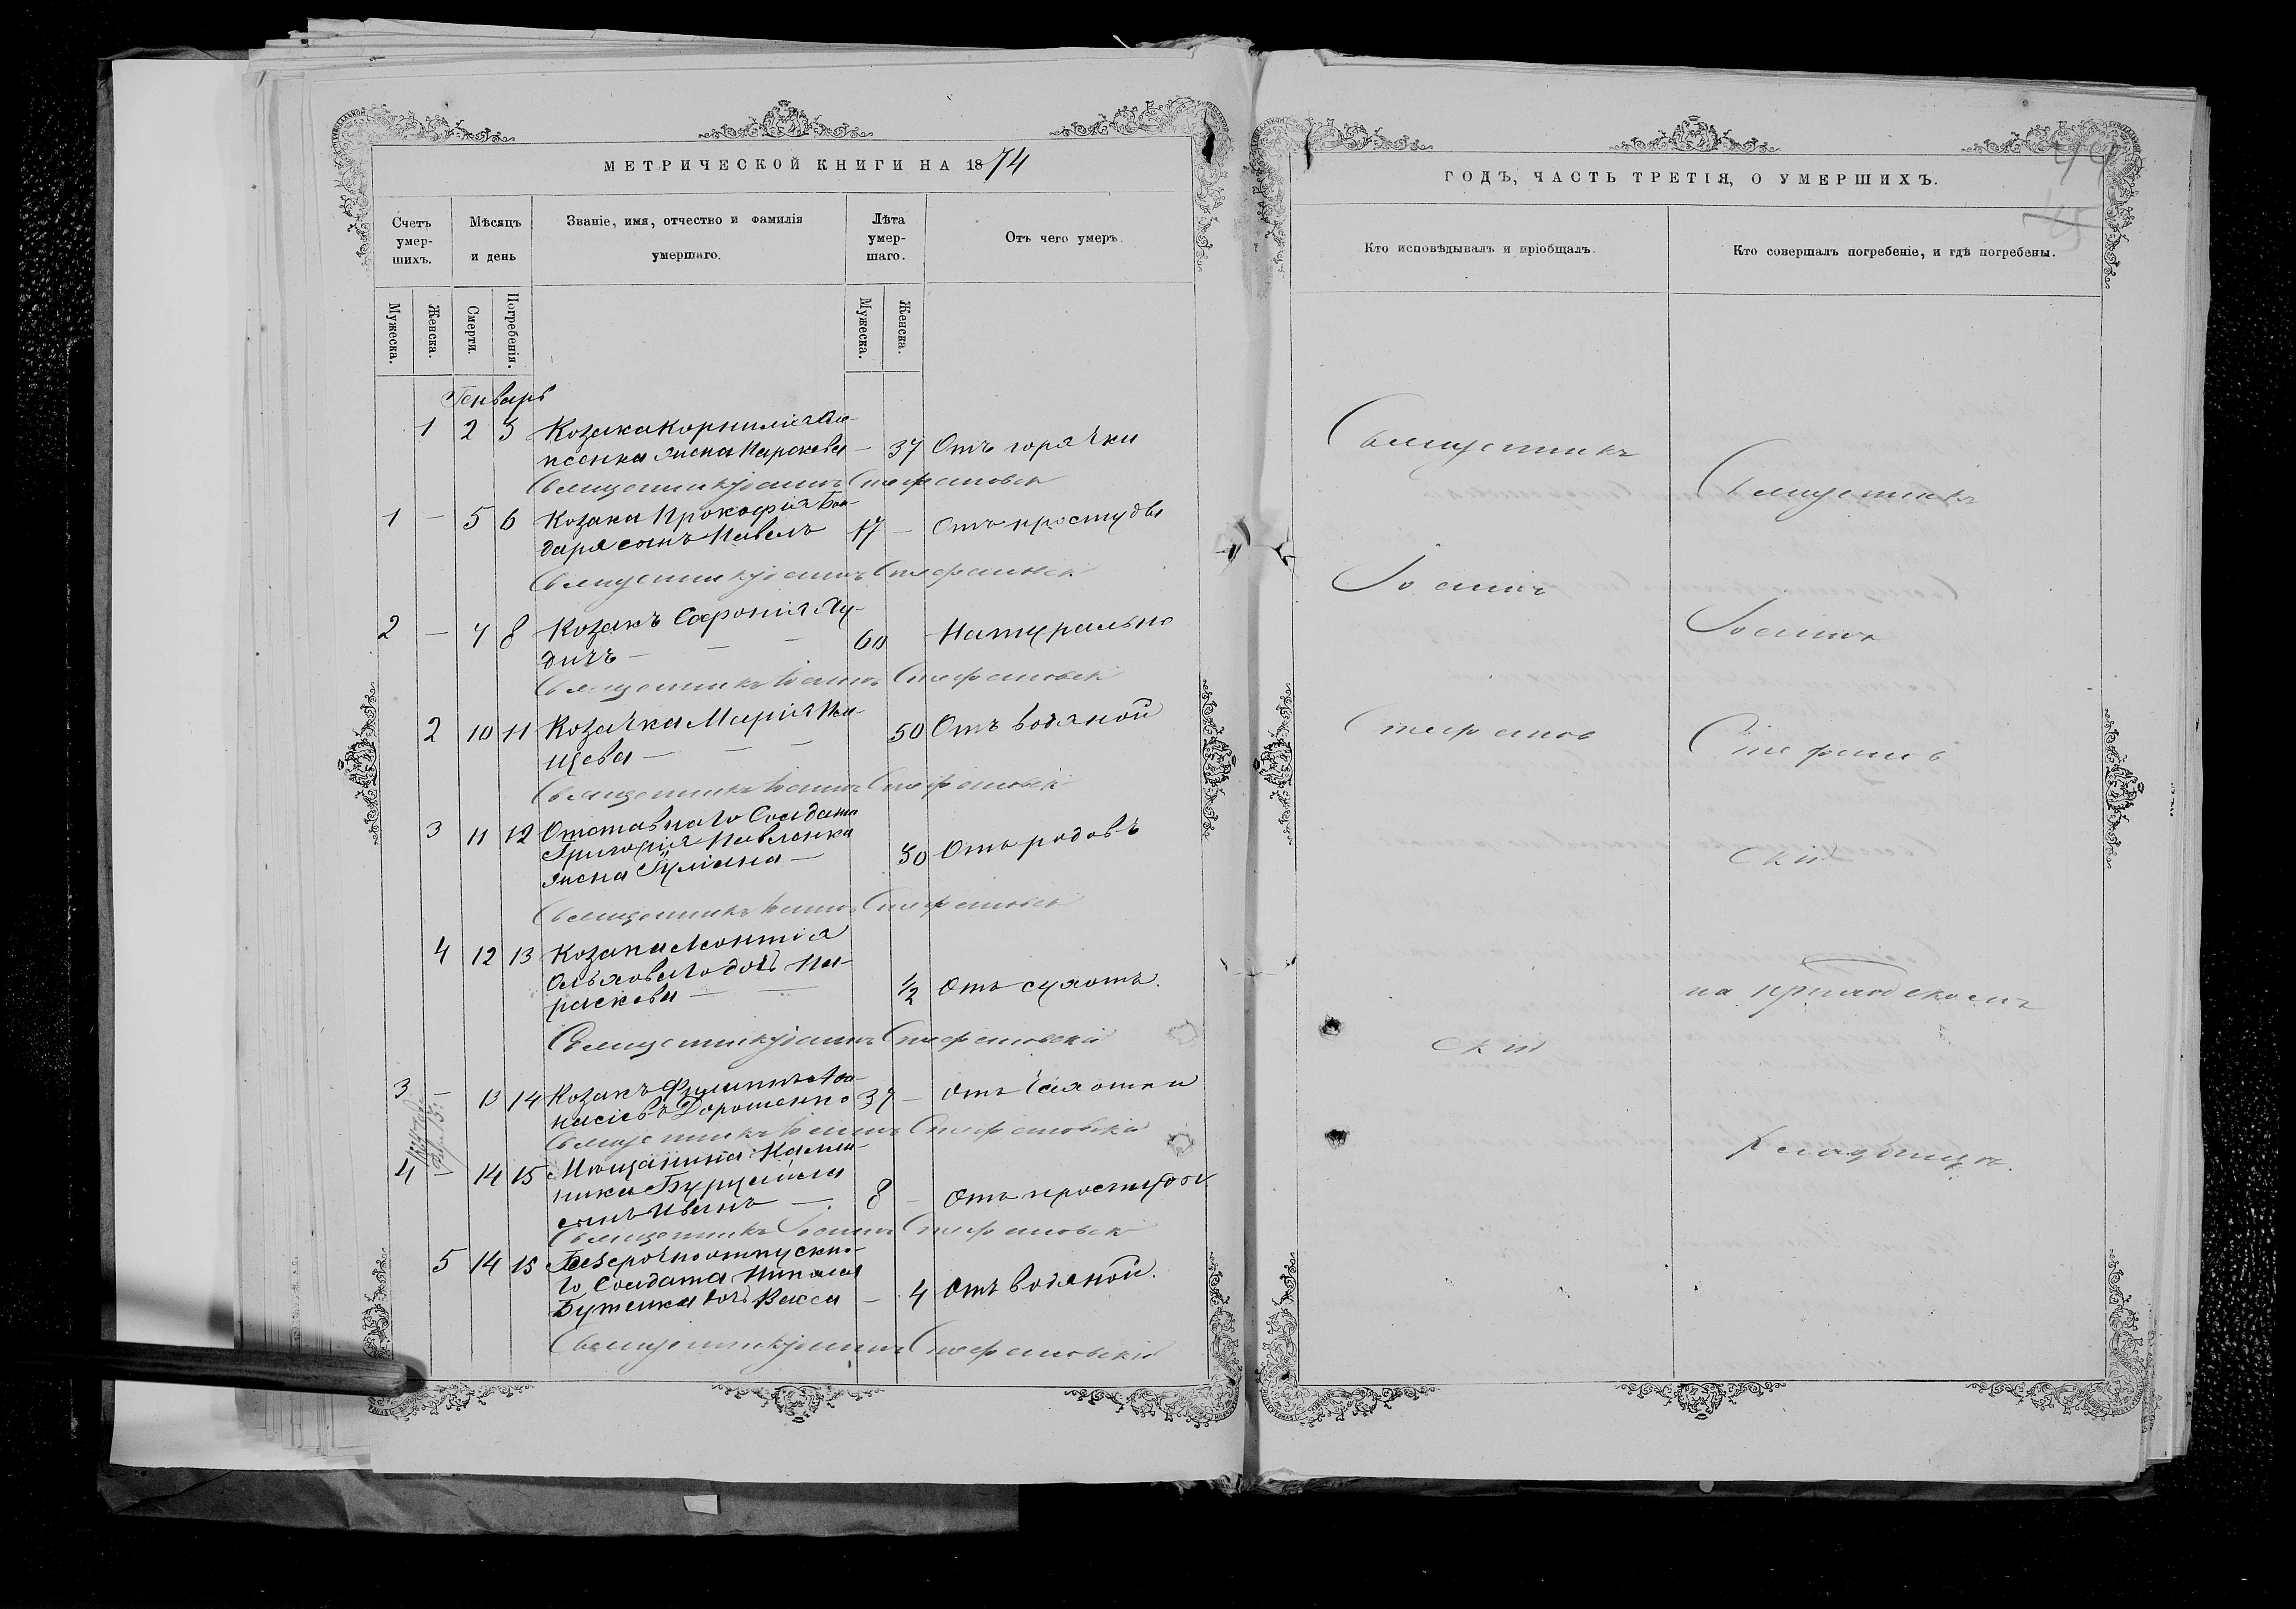 МЕТРИЧЕСКОЙ КНИГИ НА 1874
Счетъ умер-шихъ.
Мѣсяцъ и день
Званіе, имя, отчество и фамилія умершаго.
Лѣта умер-шаго.
Отъ чего умеръ.
Мужеска.
Женска.
Смерти.
Погребенія.
Мужеска.
Женска.
Генварь
1 2 3 Козака Корнилія
жена Параскева — 37 Отъ горячки
Священникъ Іоаннъ Стефановск
1 — 5 6 Козака Прокофія Бон-
даря сынъ Павелъ 17 — Отъ простуды
Священникъ Іоаннъ Стефановск
2 — 7 8 Козакъ Софроній Ду-
дичъ — 60 Натурально
Священникъ Іоаннъ Стефановск
2 10 11 Козачка Марія
щева — 50 Отъ водяной
Священникъ Іоаннъ Стефановск
3 11 12 Отставнаго Солдата
Григорія Павленка
жена — 30 Отъ родовъ
Священникъ Іоаннъ Стефановск
4 12 13 Козака Леонтія
дочь Па-
раскева — 1/2 Отъ сухотъ.
Священникъ Іоаннъ Стефановскій
3 — 13 14 Козакъ Филиппъ Афа-
насіевъ Дорошенко 37 — Отъ Чахотки
Священникъ Іоаннъ Стефановскій
4 — 14 15 Мѣщанина
сынъ Иванъ — 8 — Отъ простуды
Священникъ Іоаннъ Стефановск
5 14 15 Безсрочноотпускно-
го Солдата Николая
Бутенка дочь Васса — 4 Отъ водяной.
Священникъ Іоаннъ Стефановскій
ГОДЪ, ЧАСТЬ ТРЕТІЯ, О УМЕРШИХЪ.
Кто исповѣдывалъ и пріобщалъ.
Кто совершалъ погребеніе, и гдѣ погребены.
Священникъ
Іоаннъ
Стефанов
скій
Священникъ
Іоаннъ
Стефанов
скій
на приходскомъ
Кладбищѣ.